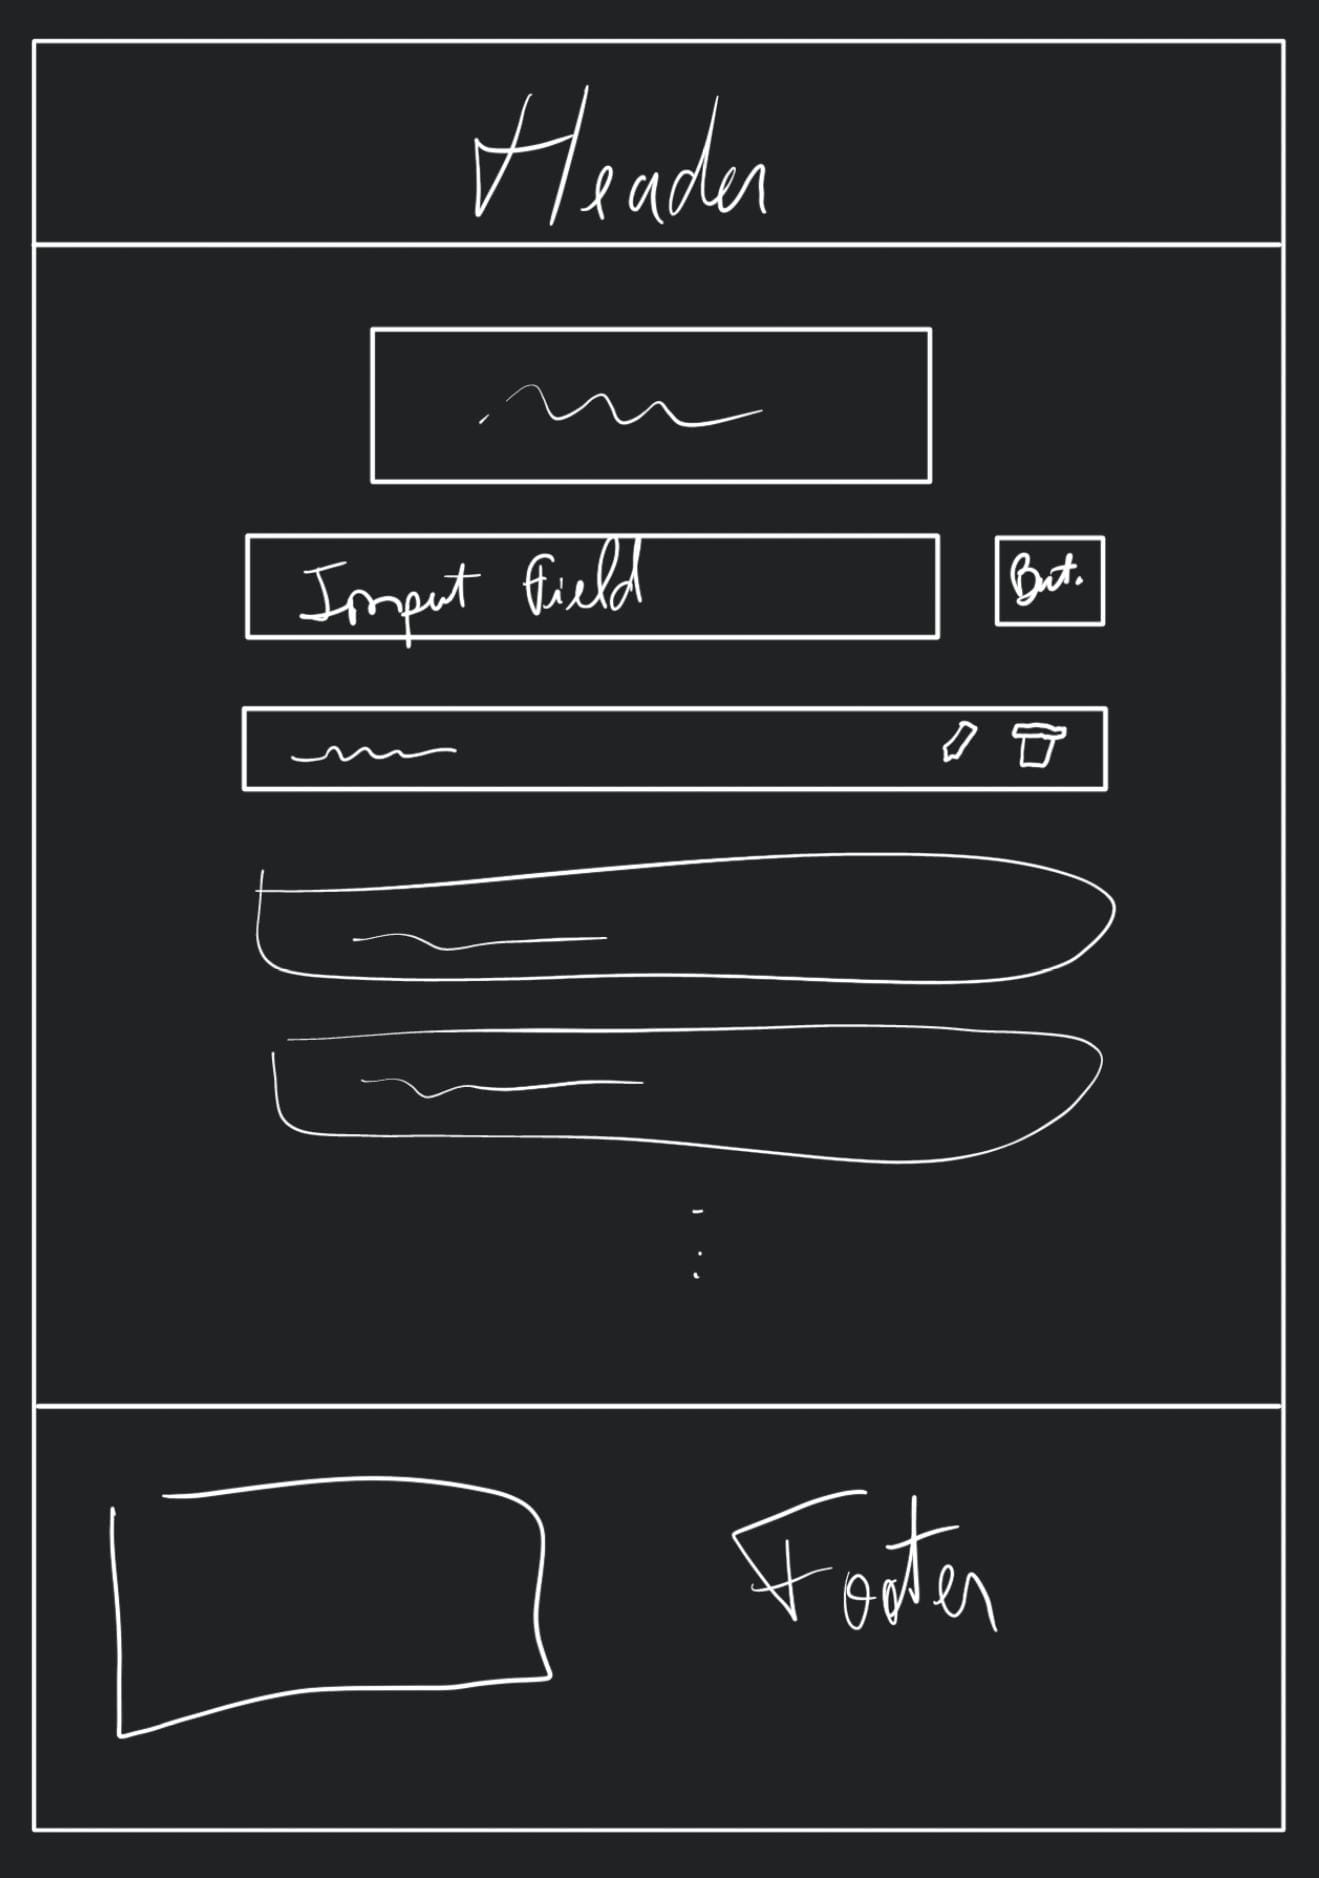 Header
Input Field
But.
Footer